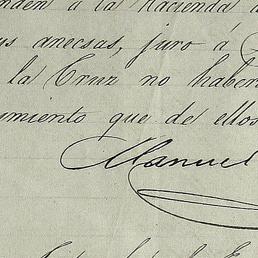 nden á la Hacienda d
us anecsas, juro á
la Cruz no haber
umiento que de ellos
Manuel